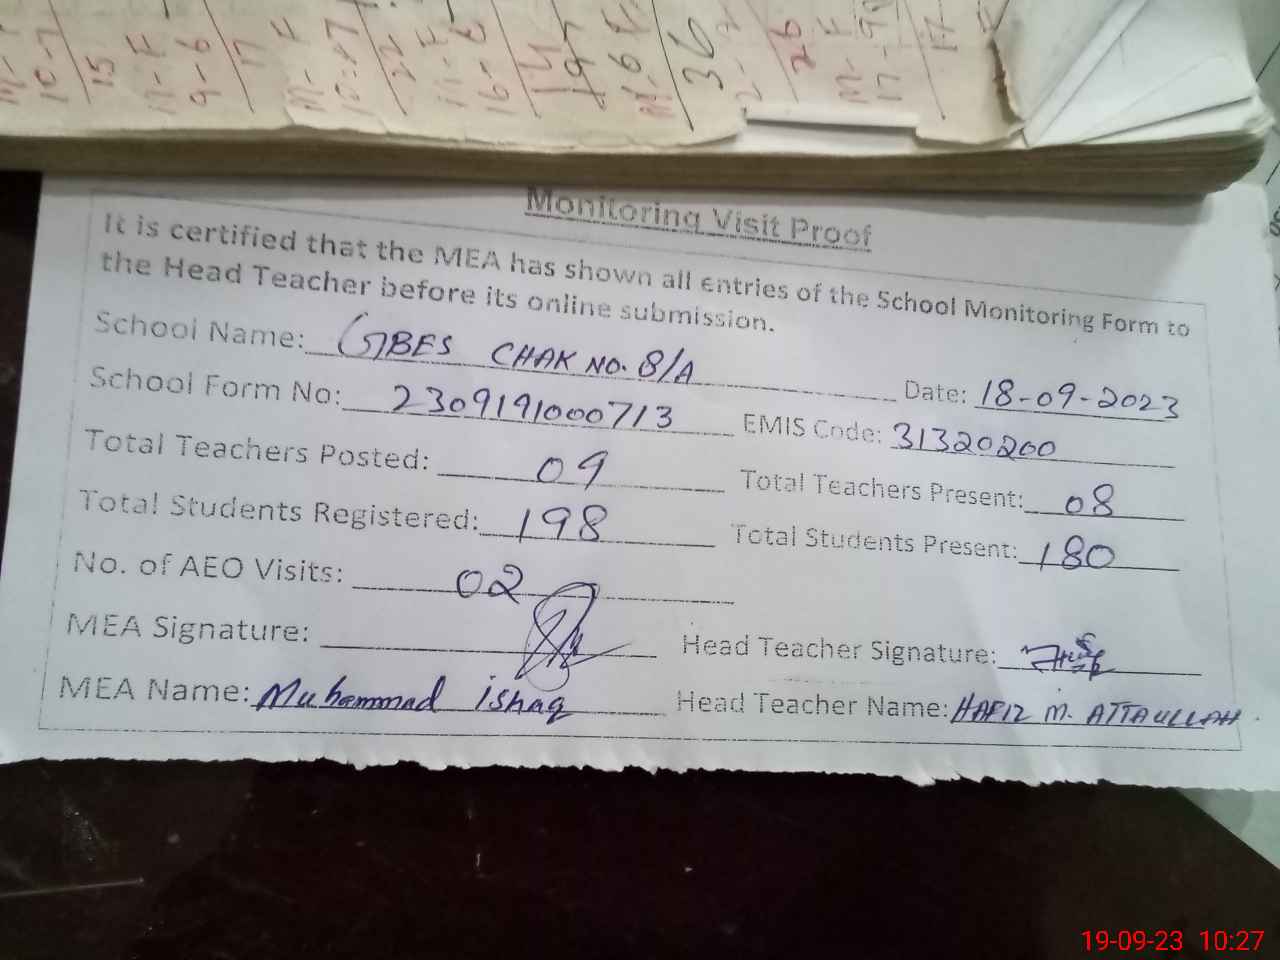 M-F
15
11-F
9-6
17
M-F
22
11-F
16-8
36
26
M-F
17
Monitoring Visit Proof
It is certified that the MEA has shown all entries of the School Monitoring Form to
the Head Teacher before its online submission.
School Name: GBES CHAK NO. 8/A Date: 18-09-2023
School Form No: 2309191000713 EMIS Code: 31320200
Total Teachers Posted: 09 Total Teachers Present: 08
Total Students Registered: 198 Total Students Present: 180
No. of AEO Visits: 02
MEA Signature: Head Teacher Signature:
MEA Name: Muhammad ishaq Head Teacher Name: HAFIZ M. ATTAULLAH
19-09-23 10:27